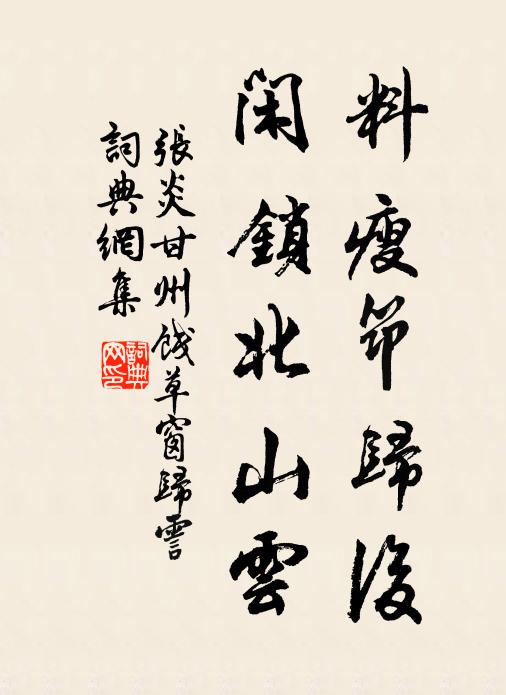 料瘦筇歸後
閑鎖北山雲
張炎甘州餞草窗歸霅
詞典網集
詞典網印